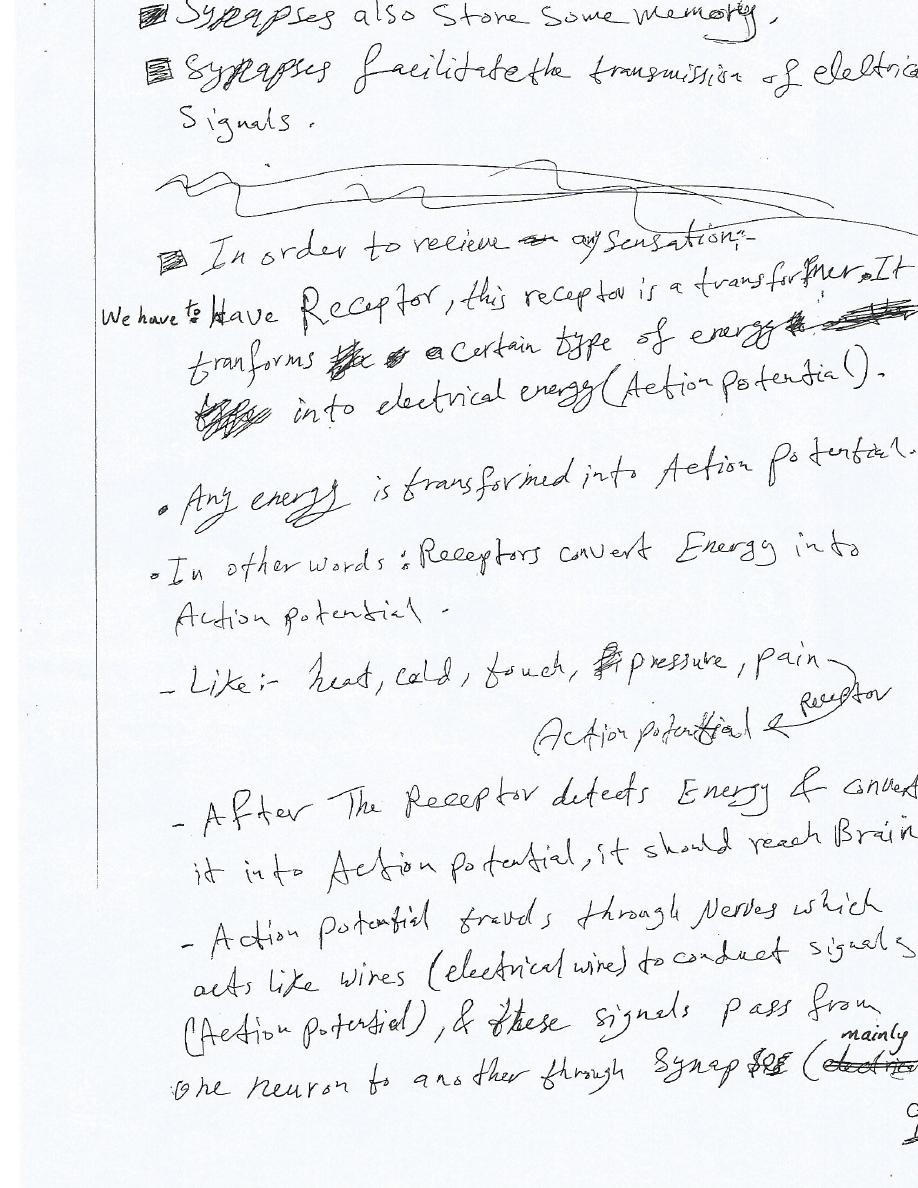 Synapses also Store Some memory.
Synapses facilitate the transmission of eleltrica
Signals.
In order to recieve any sensation:-
We have to Have Receptor, this receptor is a transformer. It
tranforms a certain type of energy
into electrical energy (Action potential).
• Any energy is transformed into Action Potential.
• In other words: Receptors convert Energy into
Action potential.
- Like:- heat, cold, touch, pressure, pain
Receptor
Action potential
- After The Receptor detects Energy & convert
it into Action potential, it should reach Brain
- Action Potential travels through Nerves which
acts like wires (electrical wire) to conduct signals
(Action potential), & these signals pass from
mainly
one neuron to another through Synapses (